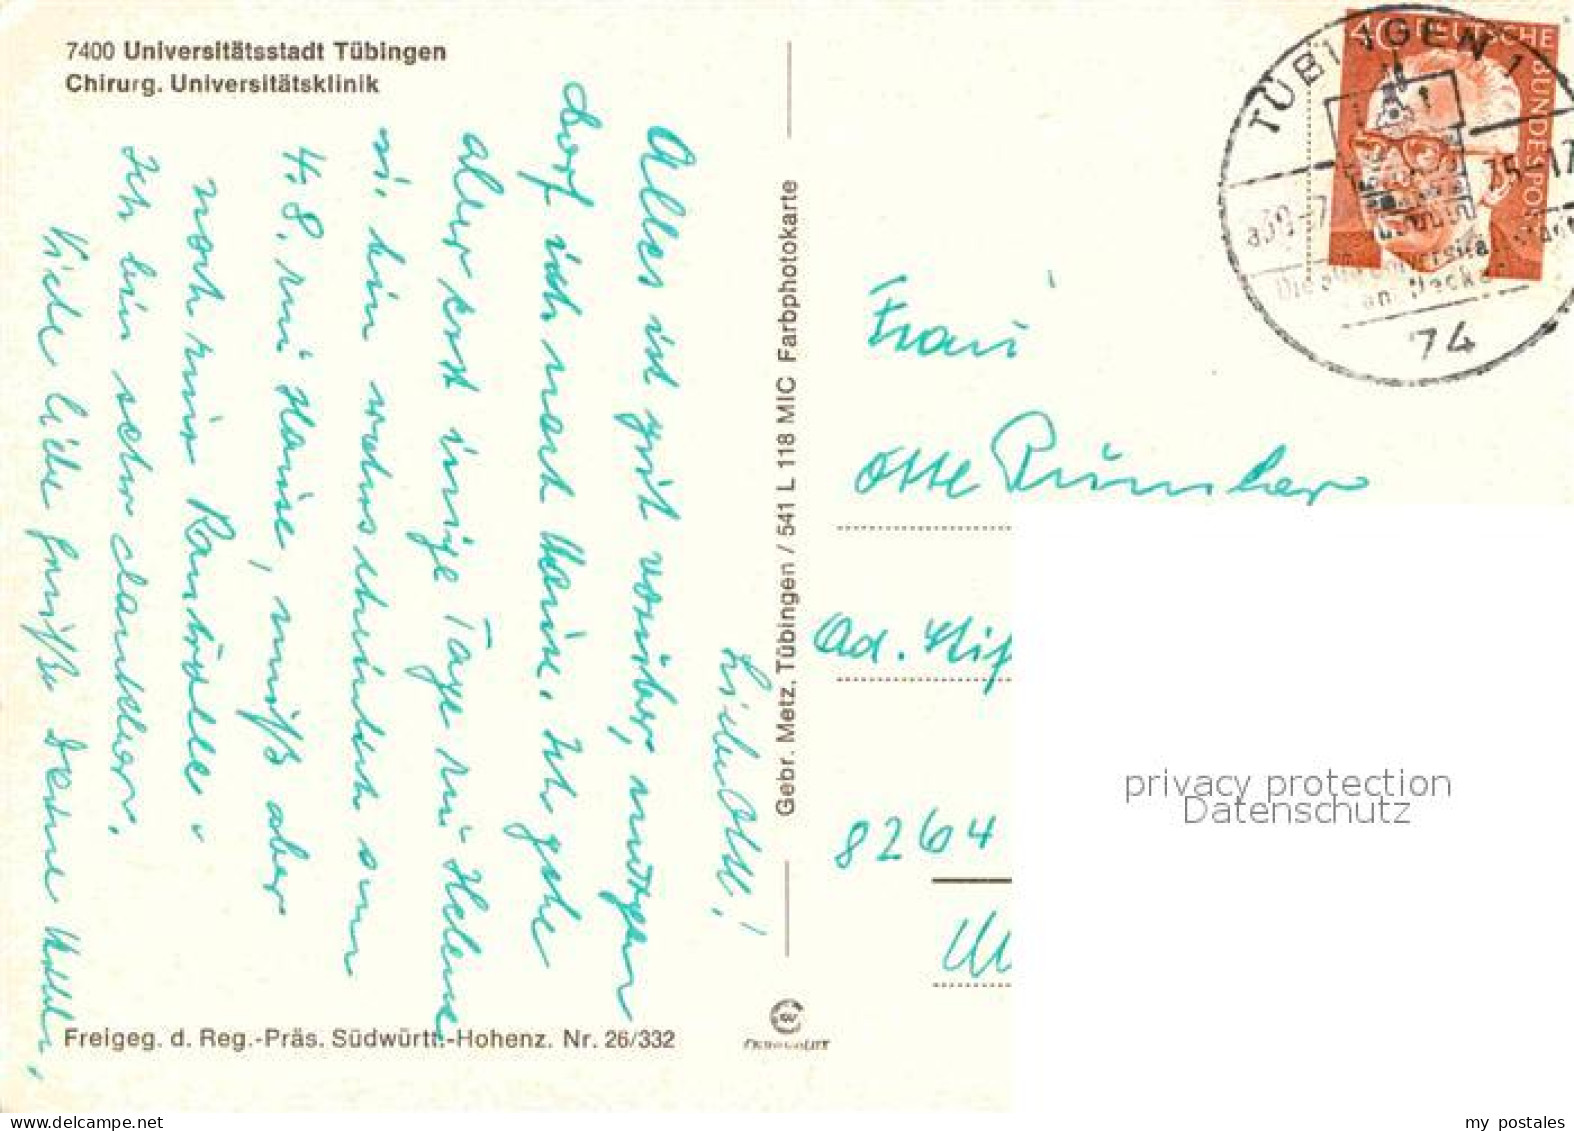 7400 Universitätsstadt Tübingen
Chirurg. Universitätsklinik
Liebe Otti!
Alles ist gut vorüber, morgen
darf ich nach Hause. Ich gehe
aber erst einige Tage zu Helene
u. bin wahrscheinlich am
4. 8. zu Hause, muß aber
noch zum
Ich bin sehr dankbar.
Viele liebe Grüße Deine
Freigeg. d. Reg.-Präs. Südwürtt.-Hohenz. Nr. 26/332
Gebr. Metz, Tübingen / 541 L 118 MIC Farbphotokarte
40 DEUTSCHE
BUNDESPOST
TÜBINGEN 1
75-17
Die alte Universitätsstadt
am Neckar
74
Frau
Ad.
8264
privacy protection
Datenschutz
my postales